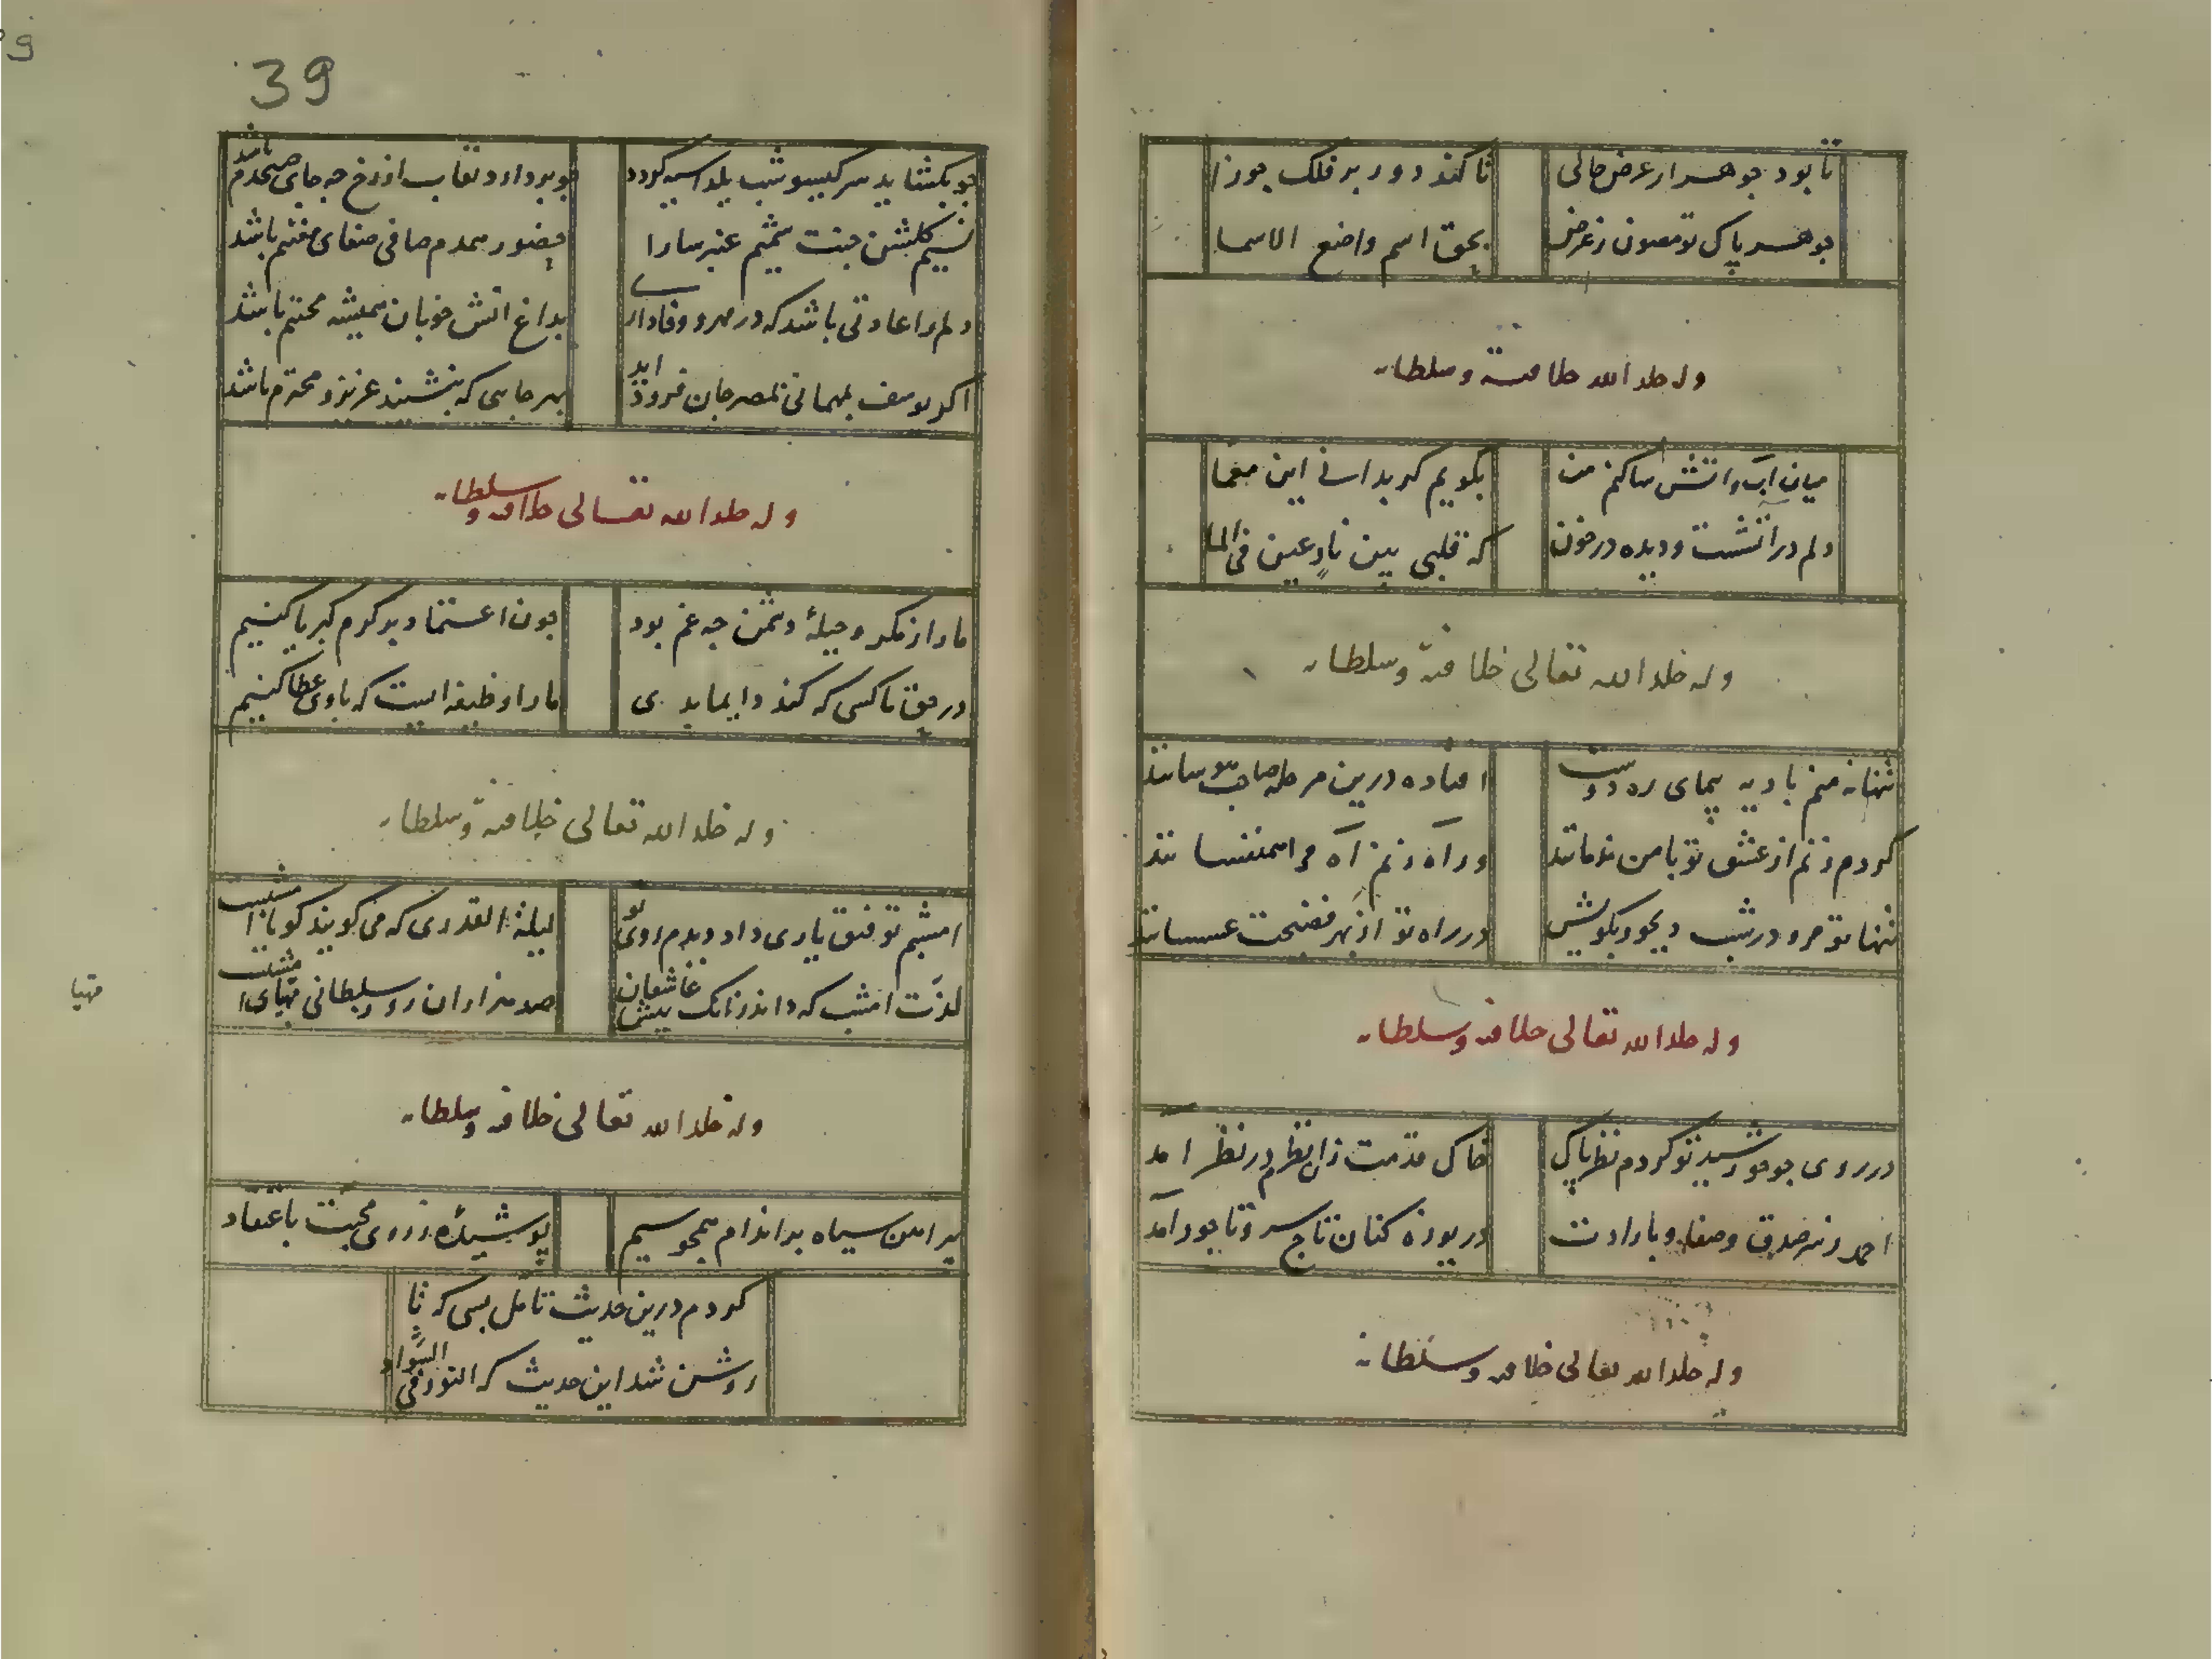 تا بود جوهر از عرض خالی
تا کند دور بر فلک جوزا
جوهر پاک تو مصون ز عرض
بحق اسم واضع الاسما
وله خلد الله خلافته وسلطانه
میان آب و آتش ساکنم من
بکویم کر بدانی این معما
دلم در آتشست و دیده در خون
که قلبی بین نار عین فی الما
وله خلد الله تعالی خلافته وسلطانه
تنها نه منم بادیه پیمای ره دوست
افتاده درین مرحله صاحب هوسانند
کر دم زنم از عشق تو با من ندمانند
ور آه زنم آه مرا همنفسانند
تنها تو مرو در شب دیجور بکویش
در راه تو از بهر فضیحت عسسانند
وله خلد الله تعالی خلافته وسلطانه
در روی جو خورشید تو کردم نظر پاک
خاک قدمت زان نظرم در نظر آمد
احمد ز سر صدق و صفا و بارادت
دریوزه کنان تاج سر و تاجور آمد
وله خلد الله تعالی خلافته وسلطانه
39
جو بکشاید سر کیسو شب یلدا سیه کردد
جو بردارد نقاب از رخ جه جای صبحدم باشد
نسیم کلشن جنت شمیم عنبر سارا
حضور همدم صافی صفای مغتنم باشد
دلم را عادتی باشد که در مهر و وفاداری
بداغ آتش خوبان همیشه محتنم باشد
اکر یوسف بمهمانی بمصر جان فرود آید
بهر جایی که بنشیند عزیز و محترم باشد
وله خلد الله تعالی خلافته وسلطانه
ما را ز مکر و حیلهٔ دشمن جه غم بود
جون اعتماد بر کرم کبریا کنیم
در حق ما کسی که کند دایما بدی
ما را وظیفه ایست که با وی عطا کنیم
وله خلد الله تعالی خلافته وسلطانه
امشبم توفیق یاری داد دیدم روی تو
لیلة القدری که می کویند کویا امشبست
لذت امشب که داند زانک پیش عاشقان
صد هزاران روز سلطانی مهیای شبست
مهیا
وله خلد الله تعالی خلافته وسلطانه
پیراهن سیاه بر اندام همجو سیم
پوشیده ز روی محبت باعتقاد
کردم درین حدیث تامل بسی که تا
روشن شد این حدیث که النور فی السواد